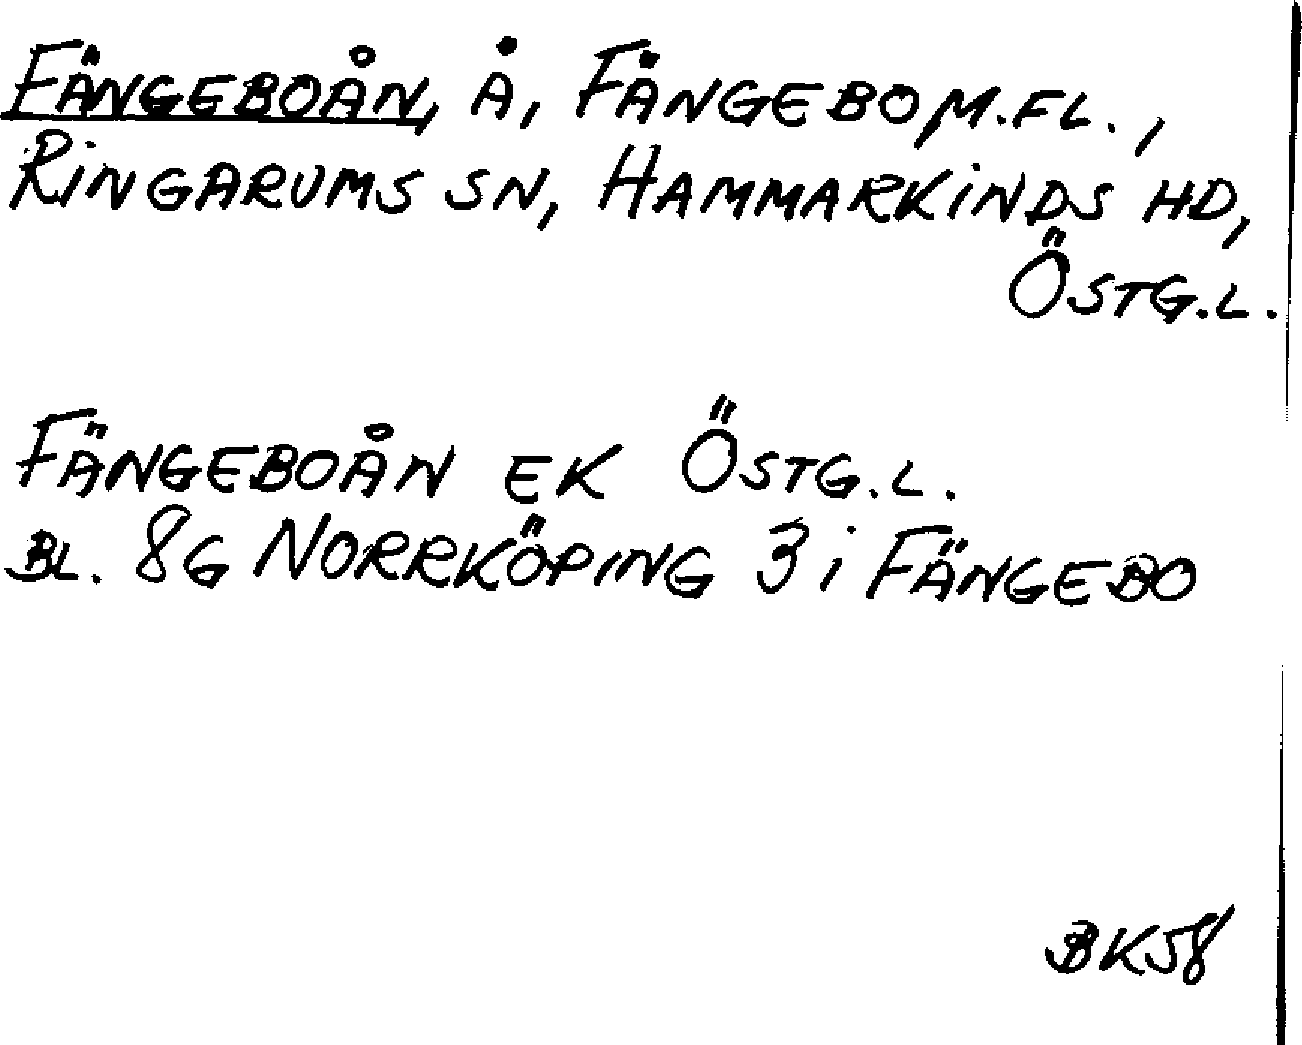 FÄNGEBOÅN, Å, FÄNGEBO M.FL.,
RINGARUMS SN, HAMMARKINDS HD,
ÖSTG.L.
FÄNGEBOÅN EK ÖSTG.L.
BL. 8G NORRKÖPING 3i FÄNGEBO
BK58